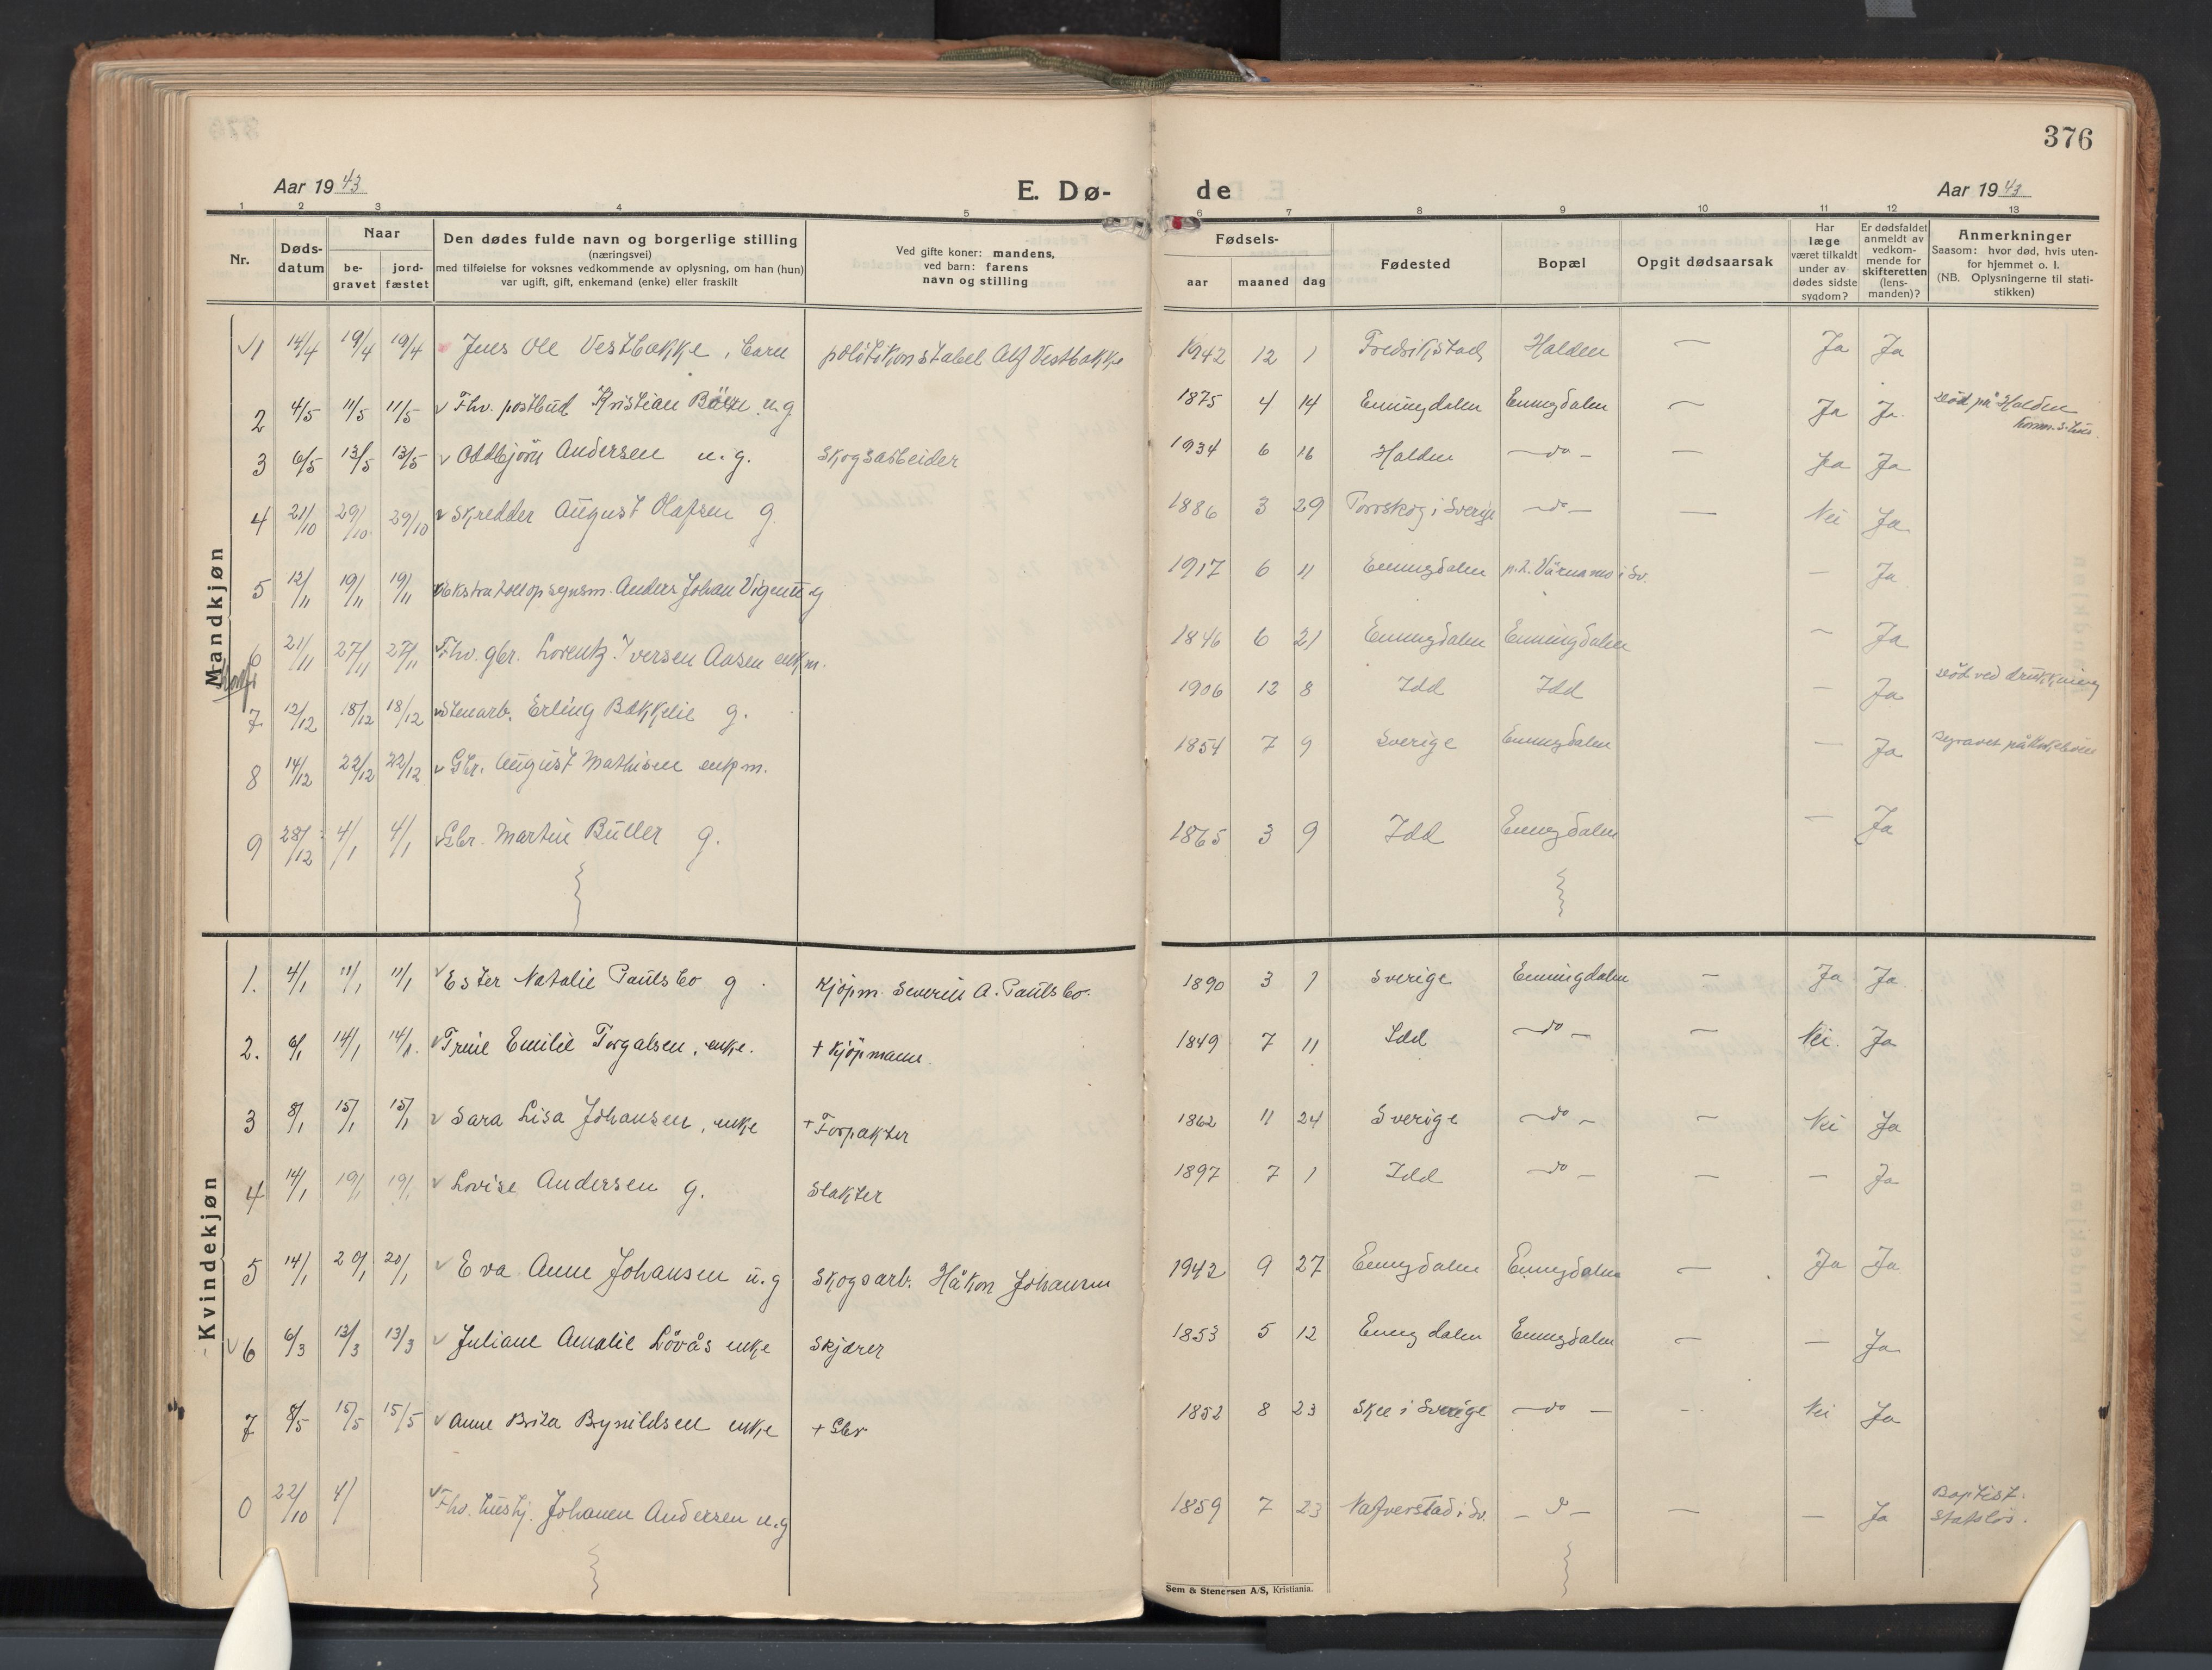 376
Aar 1943 E. Dø- de Aar 1943
1 2 3 4 5 6 7 8 9 10 11 12 13
Nr.
Døds-
datum
Naar
be-
gravet
jord-
fæstet
Den dødes fulde navn og borgerlige stilling
(næringsvei)
med tilføielse for voksnes vedkommende av oplysning, om han (hun)
var ugift, gift, enkemand (enke) eller fraskilt
Ved gifte koner: mandens,
ved barn: farens
navn og stilling
Fødsels-
aar maaned dag
Fødested
Bopæl
Opgit dødsaarsak
Har
læge
været tilkaldt
under av
dødes sidste
sygdom?
Er dødsfaldet
anmeldt av
vedkom-
mende for
skifteretten
(lens-
manden)?
Anmerkninger
Saasom: hvor død, hvis uten-
for hjemmet o. l.
(NB. Oplysningerne til stati-
stikken)
Mandkjøn
1 14/4 19/4 19/4 Jens Ole Vestbakke, barn politikonstabel Alf Vestbakke 1942 12 1 Fredrikstad Halden — Ja Ja
2 4/5 11/5 11/5 Fhv. postbud Kristian u.g. 1875 4 14 Enningdalen Enningdalen — Ja Ja død på Halden
3 6/5 13/5 13/5 Oddbjörn Andersen u.g. Skogsarbeider 1934 6 16 Halden — do — — Ja Ja
4 21/10 29/10 29/10 Skredder August Olafsen g. 1886 3 29 i Sverige — do — — Nei Ja
5 12/11 19/11 19/11 Anders Johan g 1917 6 11 Enningdalen p.t. Värnamo i Sv. — Ja
6 21/11 27/11 27/11 Fhv. gbr. Lorentz Iversen Aasen enkm. 1846 6 21 Enningdalen Enningdalen — Ja
7 12/12 18/12 18/12 Stenarb. Erling Bækkelie g. 1906 12 8 Idd Idd — Ja død ved drukkning
8 14/12 22/12 22/12 Gbr. August Mathisen enkm. 1854 7 9 Sverige Enningdalen — Ja
9 28/12 4/1 4/1 Gbr. Martin Buller g. 1865 3 9 Idd Enningdalen — Ja
Kvindekjøn
1. 4/1 11/1 11/1 Ester Natalie Paulsbo g. Kjøpm. Severin A. Paulsbo. 1890 3 1 Sverige Enningdalen — Ja Ja
2. 6/1 14/1 14/1. Trine Emilie Torgalsen, enke. + Kjøpmann. 1849 7 11 Idd — do — — Nei. Ja
3 8/1 15/1 15/1 Sara Lisa Johansen, enke + Forpakter 1862 11 24 Sverige — do — — Nei Ja
4 14/1 19/1 19/1 Lovise Andersen g. Slakter 1897 7 1 Idd — do — — — Ja
5 14/1 20/1 20/1 Eva Anne Johansen u.g Skogsarb. Håkon Johansen 1942 9 27 Enningdalen Enningdalen — Ja Ja
6 6/3 13/3 13/3 Juliane Amalie Lövås enke Skjærer 1853 5 12 Enningdalen Enningdalen — — Ja
7 8/5 15/5 15/5 Anne Brita Bynildsen enke + Gbr 1852 8 23 Skee i Sverige — do — — Nei Ja
0 22/10 4/ Fhv. hushj. Johanne Andersen u.g 1859 7 23 Naverstad i Sv. — d — — — Ja Baptist.
Statsløs.
Sem & Stenersen A/S, Kristiania.